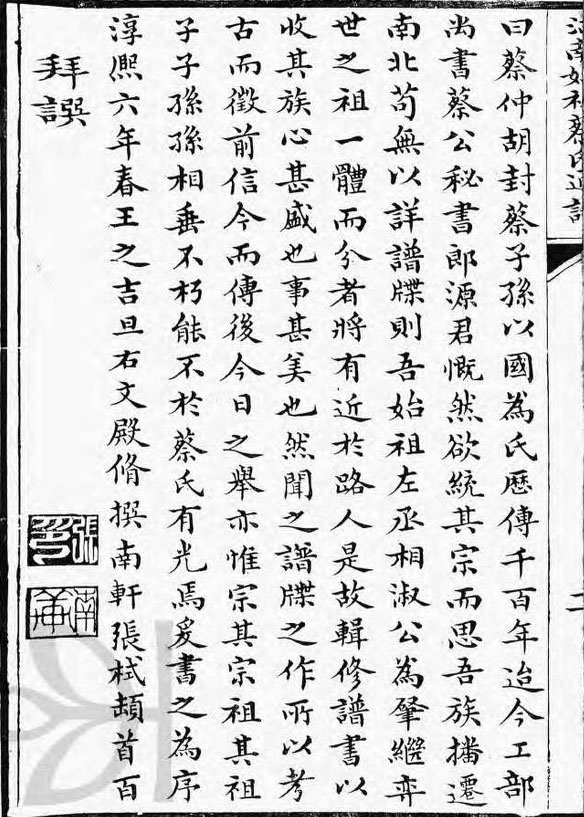 曰蔡仲胡封蔡子孫以國為氏歷傳千百年迨今工部
尚書蔡公秘書郎源君慨然欲統其宗而思吾族播遷
南北苟無以詳譜牒則吾始祖左丞相淑公為肇繼弈
世之祖一體而分者將有近於路人是故輯修譜書以
收其族心甚盛也事甚美也然聞之譜牒之作所以考
古而徵前信今而傳後今日之舉亦惟宗其宗祖其祖
子子孫孫相垂不朽能不於蔡氏有光焉爰書之為序
淳熈六年春王之吉旦右文殿脩撰南軒張栻頓首百
拜譔
張印
南軒